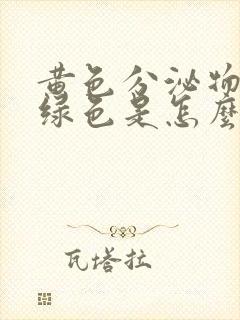 黄色分泌物
绿色是怎麽
瓦塔拉